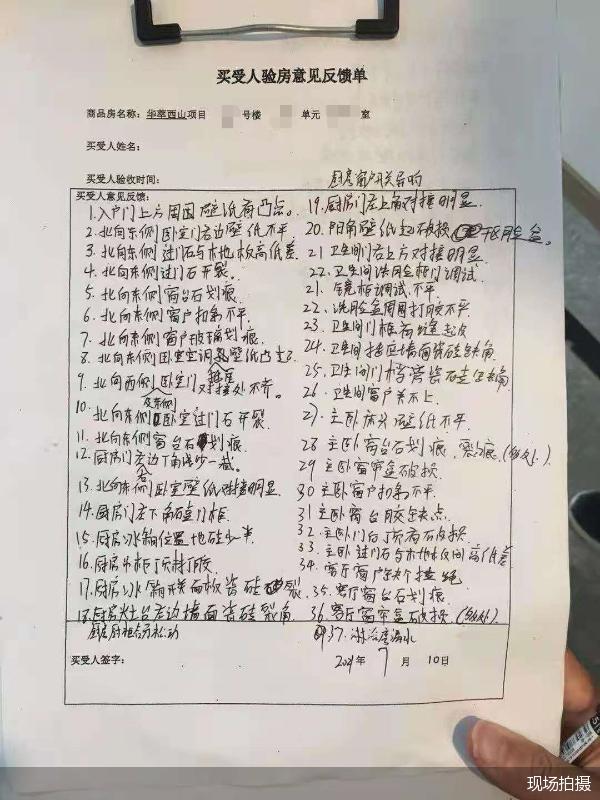 买受人验房意见反馈单
商品房名称：华萃西山项目 号楼 单元 室
买受人姓名：
买受人验收时间：
买受人意见反馈：
1.入户门上方周围壁纸有凸点。
2.北向东侧卧室门右边壁纸不平
3.北向东侧过门石与木地板高低差
4.北向东侧过门石开裂.
5.北向东侧窗台石划痕
6.北向东侧窗户扣条不平.
7.北向东侧窗户玻璃划痕
8.北向东侧卧室空调 壁纸凸
9.北向西侧卧室门 对接处不齐.
10.北向东侧卧室过门石开裂
11.北向东侧窗台石划痕
12.厨房门左边丁角线少一截
13.北向东侧卧室壁纸对接明显
14.厨房门左下角磕门框
15.厨房冰箱位置地砖少一半
16.厨房吊柜丁顶打胶
17.厨房冰箱 面板瓷砖 裂
18.厨房灶台左边墙面瓷砖裂角
厨房橱柜 松动
厨房窗户 异响
19.厨房门右上角对接明显
20.阳角壁纸起破损
21.卫生间门右上方对接明显
22.卫生间洗脸盆柜门调试
21.镜柜调试不平
22.洗脸盆周围打胶不平
23.卫生间门框有
24.卫生间接区墙面瓷砖缺角
25.卫生间门档旁瓷砖缺角
26.卫生间窗户关不上
27.主卧床头壁纸不平
28 主卧窗台石划痕,裂痕(多处.)
29 主卧窗帘盒破损
30 主卧窗户扣条不平
31 主卧窗台胶缺点
32.主卧门白丁顶有破损
33.主卧过门石与木地板间高低差
34.客厅窗户缺个拉绳
35.客厅窗台石划痕
36.客厅窗帘盒破损.(多处)
37.淋浴 漏水
买受人签字：
2021年 7 月 10日
现场拍摄